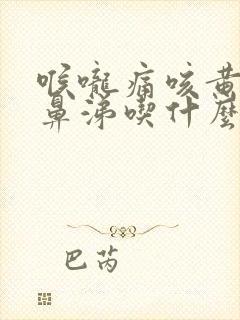 喉嚨痛咳黃
鼻涕喫什麼
巴芮